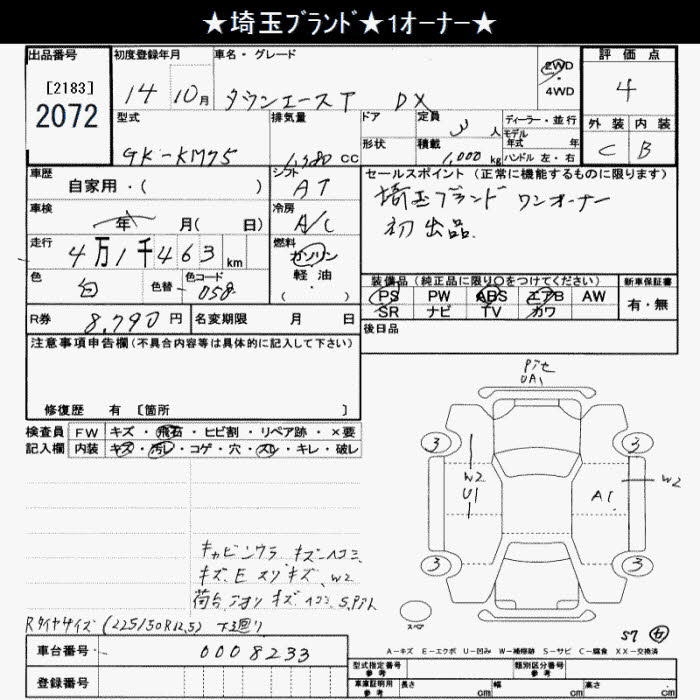 ★埼玉ブランド★1オーナー★
出品番号
[2183]
2072
初度登録年月
14 10月
車名・グレード
タウンエースT DX
2WD
・
4WD
評価点
4
型式
GK-KM75
排気量
cc
ドア
形状
定員
人
積載
1,000 kg
ディーラー・並行
モデル
年式 年
ハンドル 左・右
外装 内装
C B
車歴
自家用・( )
シフト
AT
セールスポイント (正常に機能するものに限ります)
埼玉ブランド ワンオーナー
初出品
車検
年 月( 日)
冷房
A/C
走行
4万1千463 km
燃料
ガソリン
軽・油
( ・ )
色
白
色替
色コード
058
装備品 (純正品に限り○をつけてください)
新車保証書
PS PW ABS エアB AW
SR ナビ TV カワ
有・無
R券
8,790円
名変期限 月 日
後日品
注意事項申告欄(不具合内容等は具体的に記入して下さい)
修復歴 有 [箇所 ]
検査員
記入欄
FW キズ・飛石・ヒビ割・リペア跡・×要
内装 キズ・汚レ・コゲ・穴・スレ・キレ・破レ
UA1
3 3
W2
U1
A1
W2
3 3
スペア
キャビンウラ キズヘコミ
キズ、E スリキズ、W2
荷台、アオリ キズ ヘコミ S,
Rタイヤサイズ (225/50R12.5) 下廻り
車台番号
0008233
登録番号
A-キズ E-エクボ U-凹み W-補修跡 S-サビ C-腐食 XX-交換済
型式指定番号
参考
類別区分番号
参考
車庫証明用
参考
長さ cm
幅 cm
高さ cm